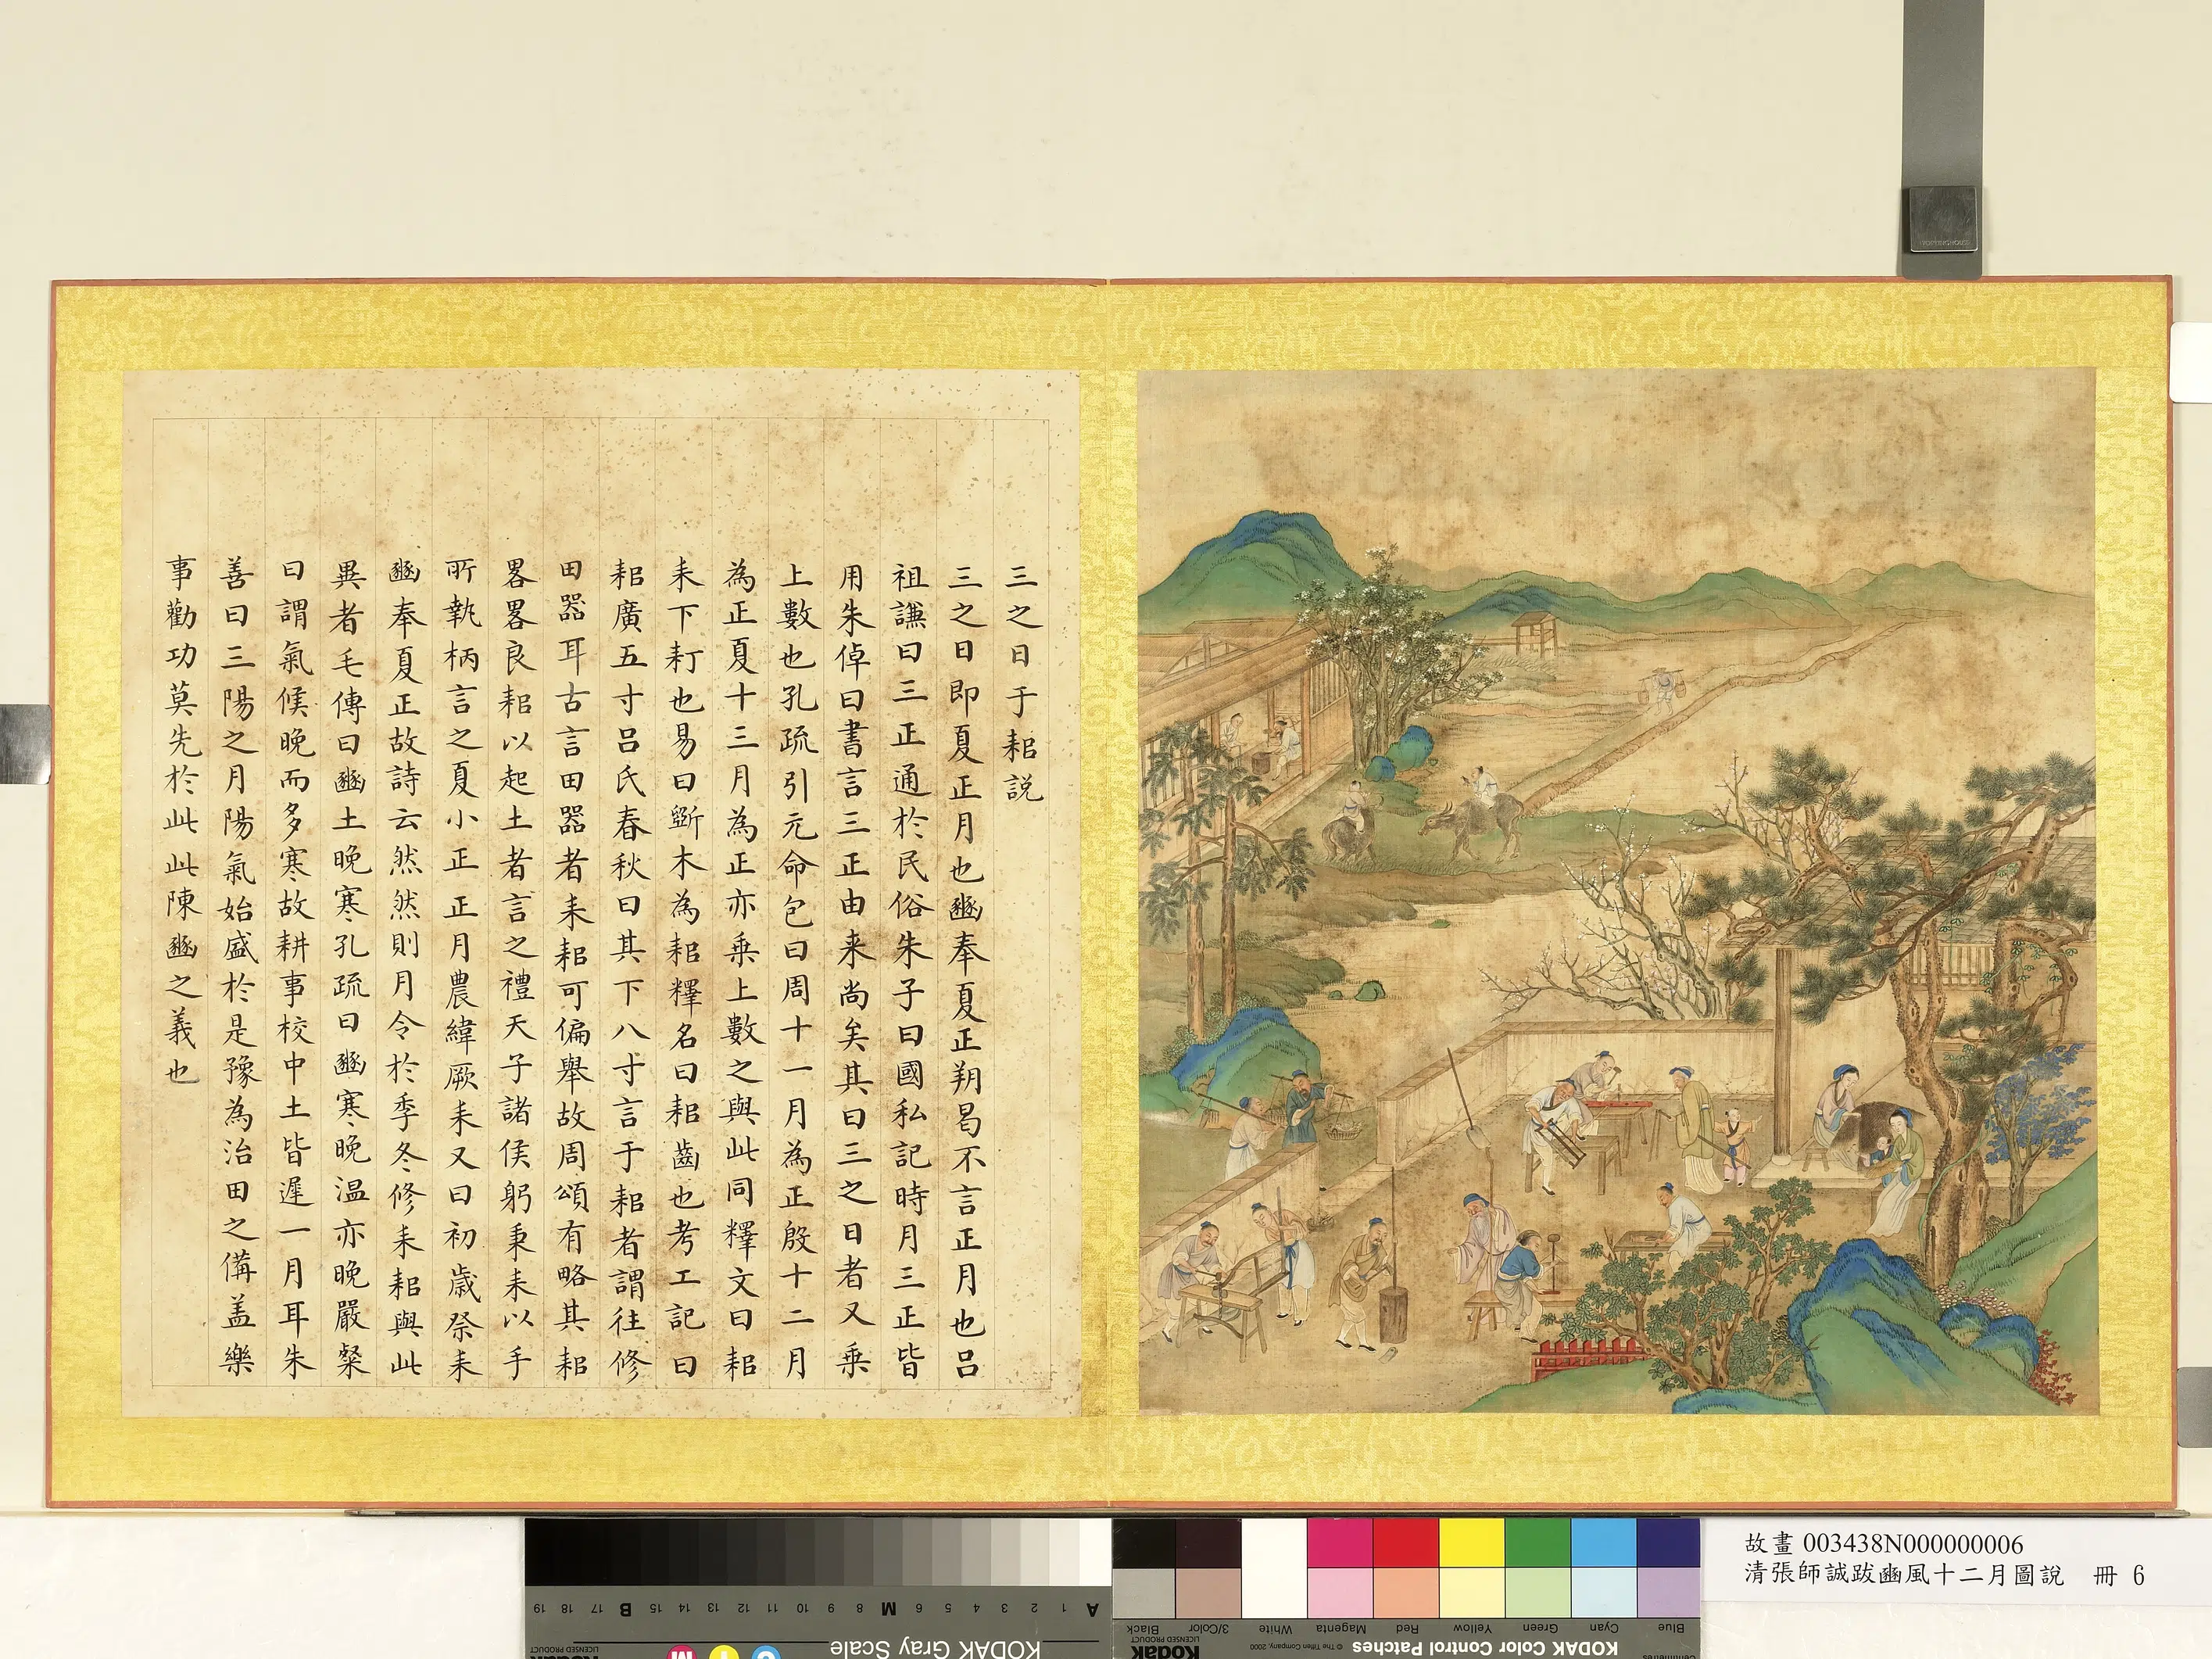 三之日于耜説
三之日即夏正月也豳奉夏正朔曷不言正月也呂
祖謙曰三正通於民俗朱子曰國私記時月三正皆
用朱倬曰書言三正由来尚矣其曰三之日者又乗
上數也孔疏引元命包曰周十一月為正殷十二月
為正夏十三月為正亦乗上數之與此同釋文曰耜
耒下耓也易曰斲木為耜釋名曰耜齒也考工記曰
耜廣五寸呂氏春秋曰其下八寸言于耜者謂往修
田器耳古言田器者耒耜可偏舉故周頌有略其耜
畧畧良耜以起土者言之禮天子諸侯躬秉耒以手
所執柄言之夏小正正月農緯厥耒又曰初歳祭耒
豳奉夏正故詩云然然則月令於季冬修耒耜與此
異者毛傳曰豳土晩寒孔疏曰豳寒晩温亦晩嚴粲
曰謂氣候晩而多寒故耕事校中土皆遲一月耳朱
善曰三陽之月陽氣始盛於是豫為治田之備盖樂
事勸功莫先於此此陳豳之義也
故畫 003438N000000006
清張師誠跋豳風十二月圖說 冊 6
KODAK Gray Scale
A 1 2 3 4 5 6 M 8 9 10 11 12 13 14 15 B 17 18 19
C Y M
Kodak
LICENSED PRODUCT
KODAK Color Control Patches
© The Tiffen Company, 2000
Kodak
LICENSED PRODUCT
Blue Cyan Green Yellow Red Magenta White 3/Color Black
Centimetres